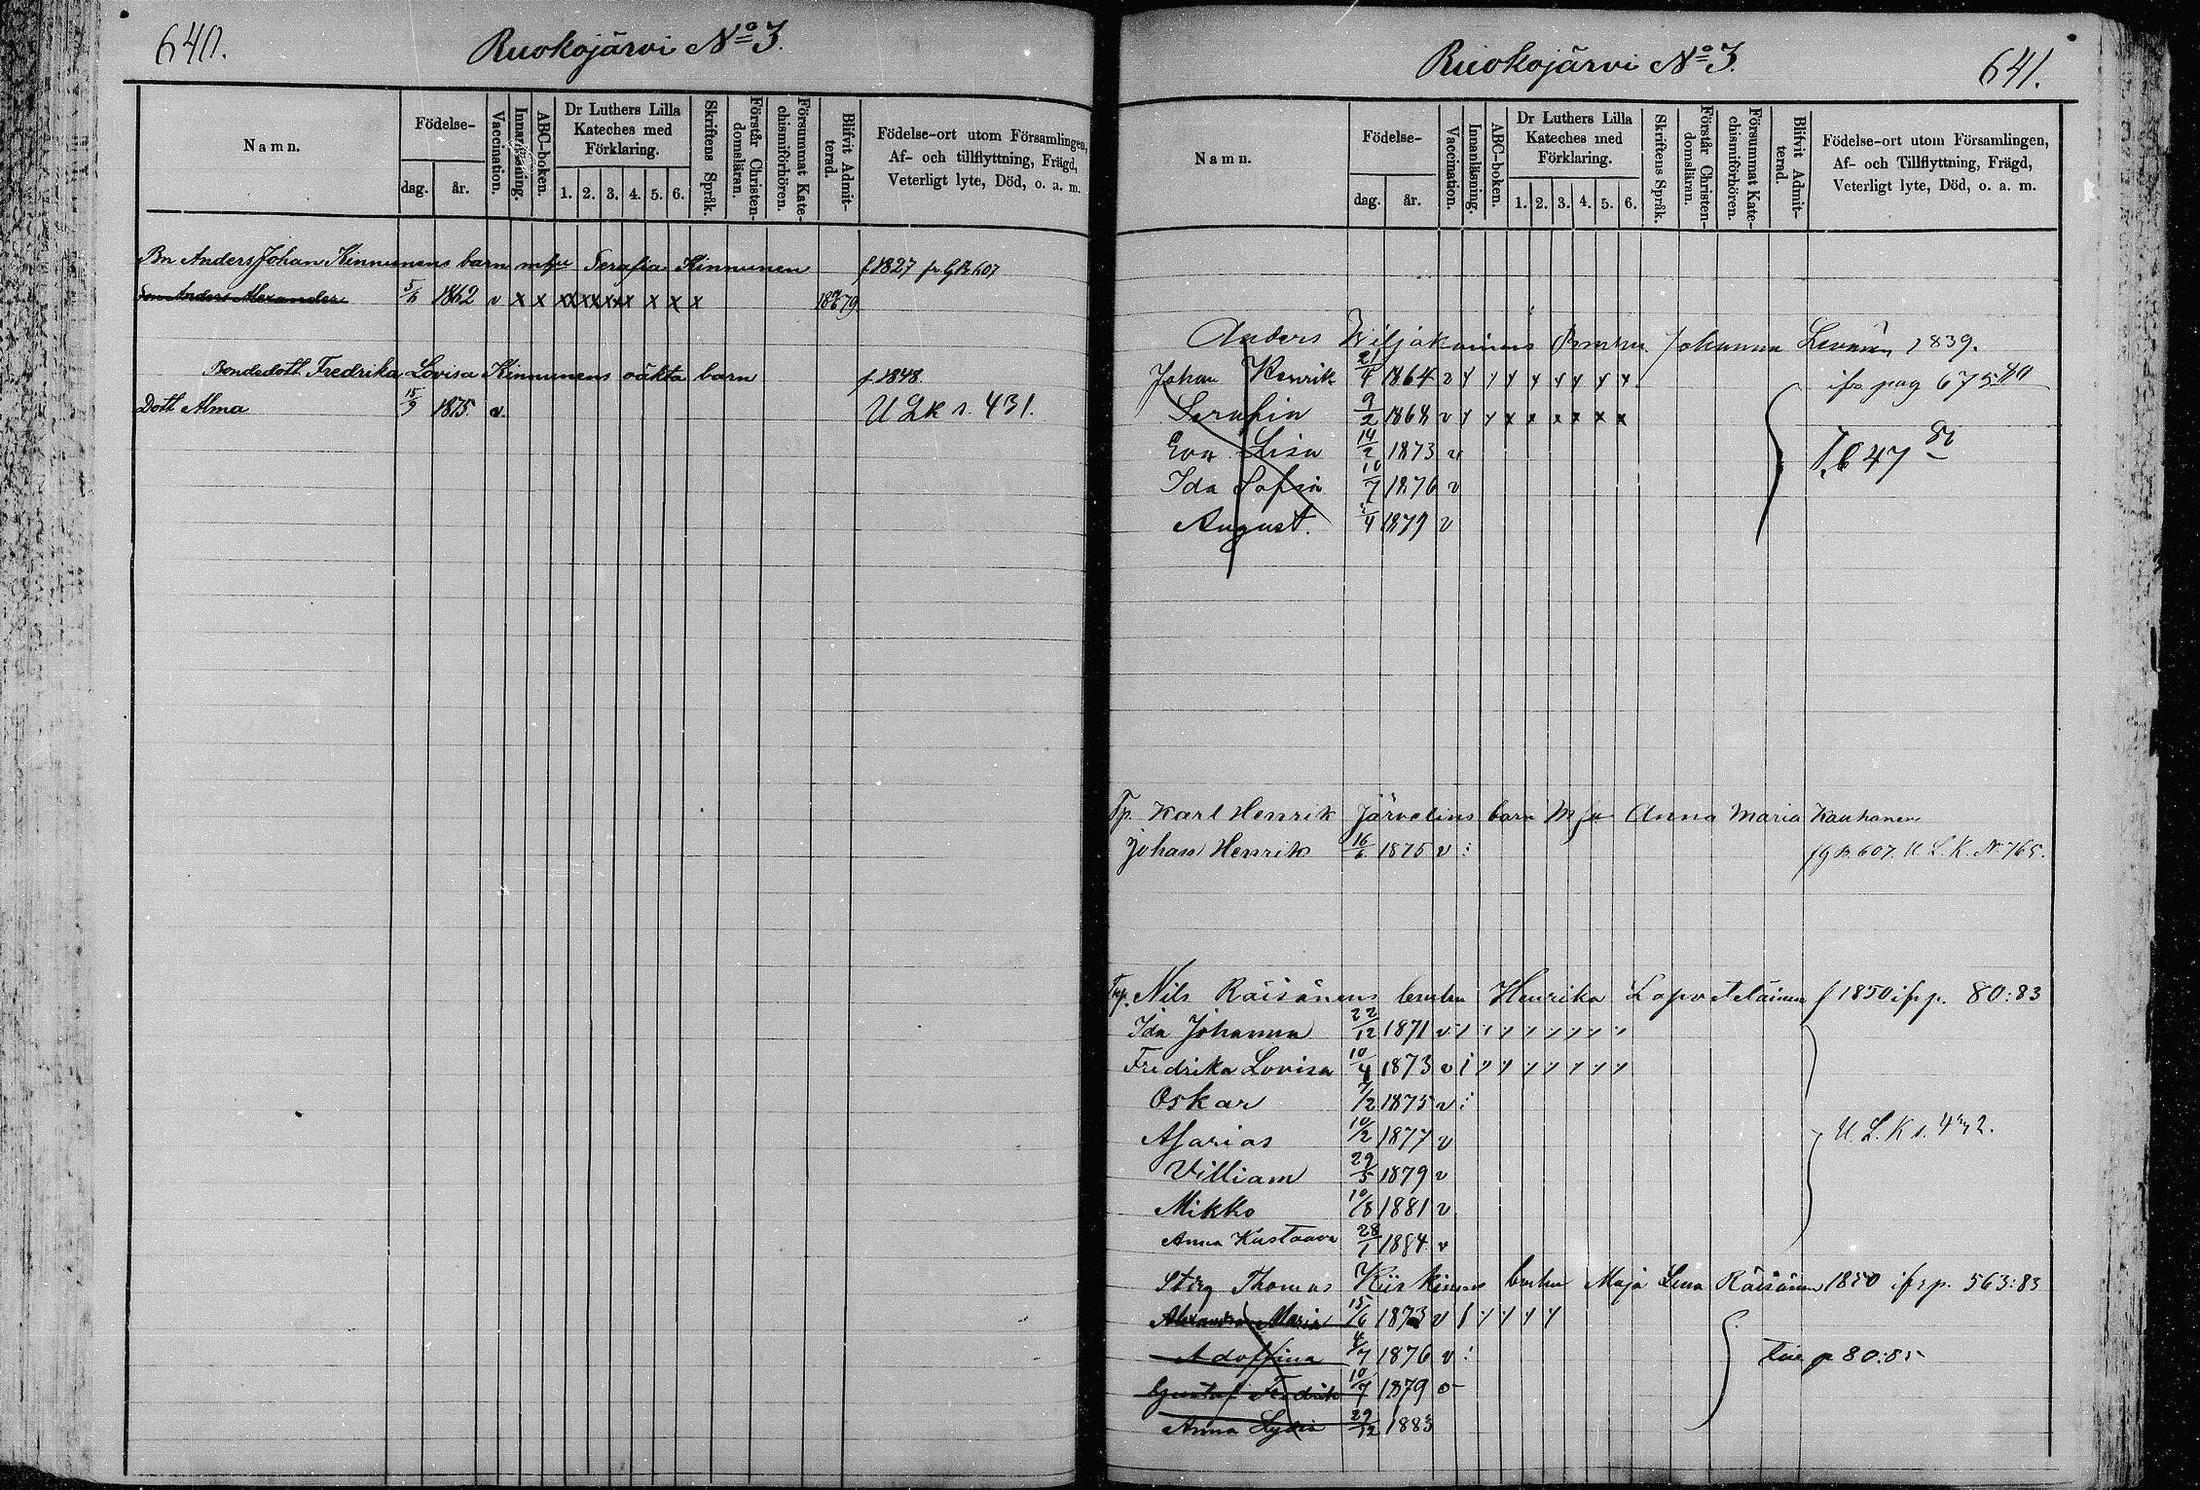 640.
Ruokojärvi No 3.
Namn.
Födelse-
dag.
år.
Vaccination.
Innanläsning.
ABC-boken.
Dr Luthers Lilla
Kateches med
Förklaring.
1. 2. 3. 4. 5. 6.
Skriftens Språk.
Förstår Christen-
domsläran.
Försummat Kate-
chismiförhören.
Blifvit Admit-
terad.
Födelse-ort utom Församlingen,
Af- och tillflyttning, Frägd,
Veterligt lyte, Död, o. a. m.
Bn Anders Johan Kinnunens barn m hu Serafia Kinnunen f 1827 fr GB 607
Son Anders Alexander 5/6 1862 v x x xx xx xxx x x x 18 79
Bondedott Fredrika Lovisa Kinnunens oäkta barn f 1848.
Dott Alma 15/9 1875 v U Lk s. 431.
Ruokojärvi No 3.
641.
Namn.
Födelse-
dag.
år.
Vaccination.
Innanläsning.
ABC-boken.
Dr Luthers Lilla
Kateches med
Förklaring.
1. 2. 3. 4. 5. 6.
Skriftens Språk.
Förstår Christen-
domsläran.
Försummat Kate-
chismiförhören.
Blifvit Admit-
terad.
Födelse-ort utom Församlingen,
Af- och Tillflyttning, Frägd,
Veterligt lyte, Död, o. a. m.
Anders Johanna 1839.
Johan Henrik 21/4 1864 v ifr pag 675
Serafin 9/2 1868 v
Eva Lisa 14/2 1873 v 647
Ida Sofia 10/7 1876 v
August. /4 1879 v
Tp. Karl Henrik Järvelins barn M hu Anna Maria Kauhanen
Johan Henrik 16/6 1875 v : f G B. 607. U. L. K. N. 765.
Nils Räisänens Henrika Lapveteläinen f 1850 ifr p. 80:83
Ida Johanna 22/12 1871 v
Fredrika Lovisa 10/4 1873 v
Oskar 7/2 1875 v :
Asarias 10/2 1877 v U. L. K s. 432.
Villiam 29/5 1879 v
Mikko 10/8 1881 v
Anna Kustaava 28/1 1884 v
Thomas Kiiskinens Maja Lena Räisänen 1850 ifr p. 563:83
Alexandra Maria 15/6 1873 v
Adolfina 4/7 1876 v : p 80:85
Gustaf Fredrik 10/7 1879 v
Anna Lydia 29/12 1883